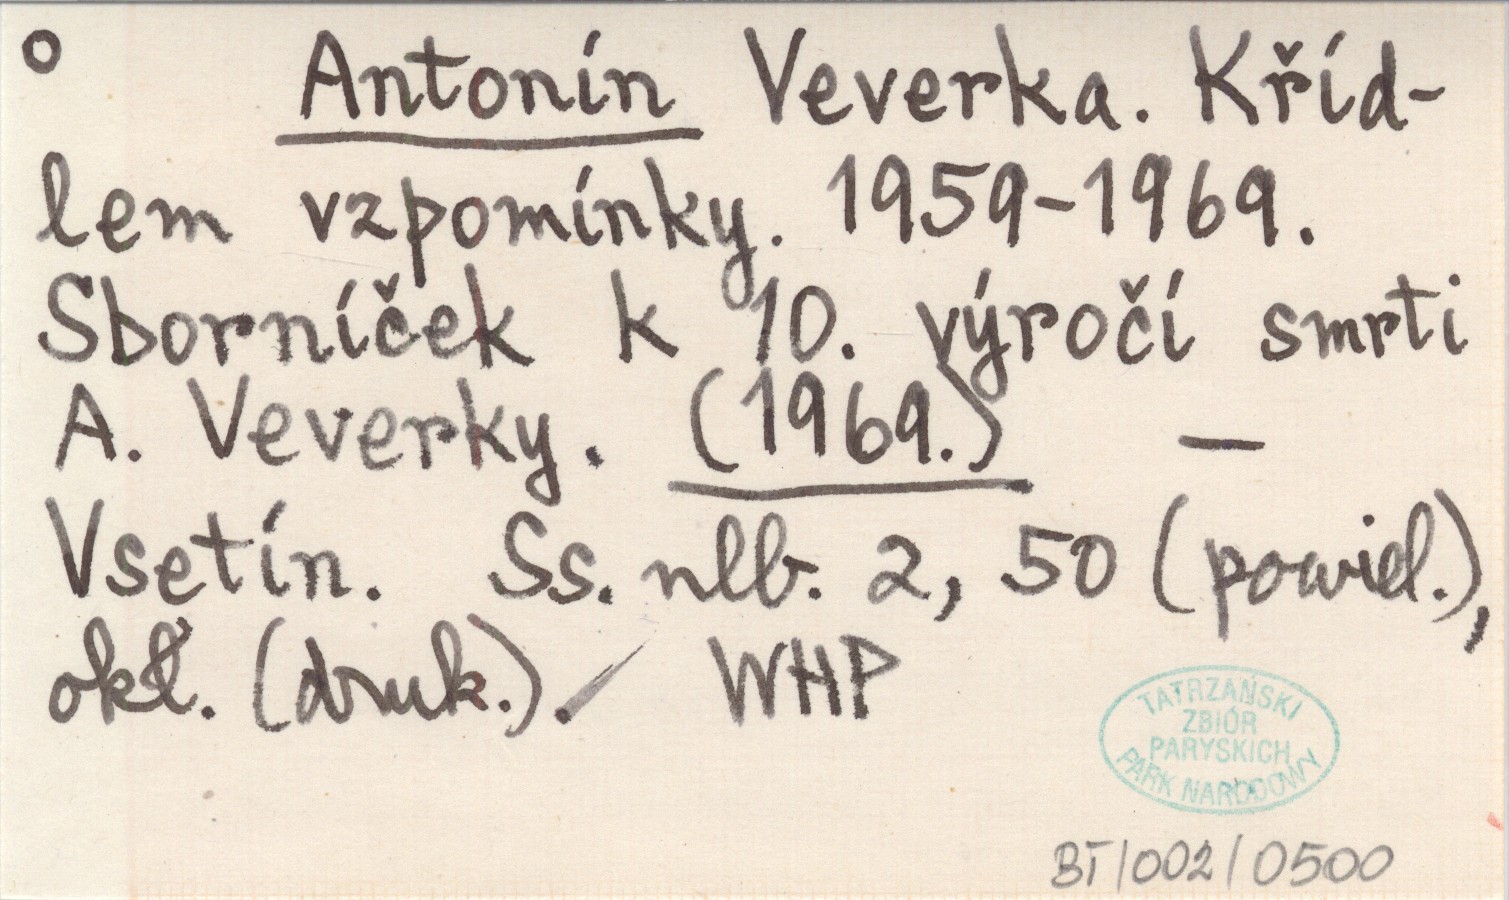 o Antonín Veverka. Kříd-
lem vzpomínky. 1959-1969.
Sborníček k 10. výročí smrti
A. Veverky. (1969.) —
Vsetín. Ss. nlb. 2, 50 (powiel.),
okł. (druk.). WHP
TATRZAŃSKI
ZBIÓR
PARYSKICH
PARK NARODOWY
BT/002/0500